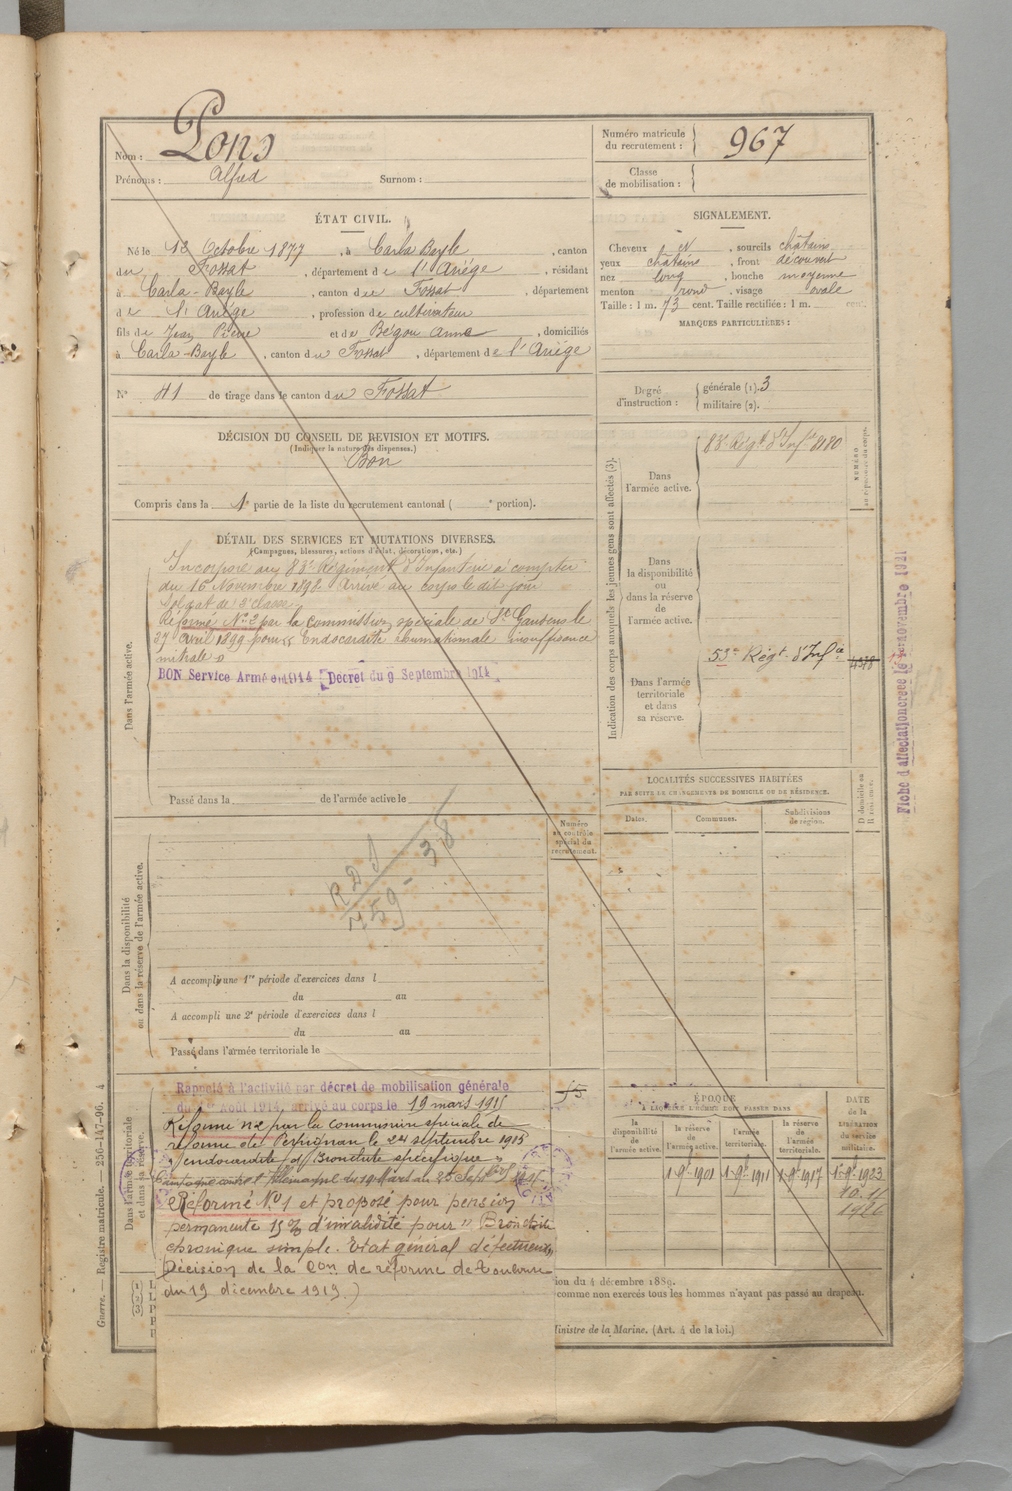 Nom : Pons
Prénoms : Alfred Surnom :
Numéro matricule du recrutement : 967
Classe de mobilisation :
ÉTAT CIVIL.
Né le 13 Octobre 1877, à Carla Bayle, canton
du Fossat, département de l'Ariége, résidant
à Carla-Bayle, canton du Fossat, département
de l'Ariège, profession de cultivateur
fils de Jean Pierre et de Bégou Anna, domiciliés
à Carla-Bayle, canton du Fossat, département de l'Ariége
N° 41 de tirage dans le canton du Fossat
SIGNALEMENT.
Cheveux et, sourcils châtains
yeux châtains, front découvert
nez long, bouche moyenne
menton rond, visage ovale
Taille : 1 m. 73 cent. Taille rectifiée : 1 m. cent.
MARQUES PARTICULIÈRES :
Degré d'instruction : générale (1). 3
militaire (2).
DÉCISION DU CONSEIL DE REVISION ET MOTIFS.
(Indiquer la nature des dispenses.)
Bon
Compris dans la 1e partie de la liste du recrutement cantonal ( e portion).
DÉTAIL DES SERVICES ET MUTATIONS DIVERSES.
(Campagnes, blessures, actions d'éclat, décorations, etc.)
Dans l'armée active.
Incorporé au 83e Régiment d'Infanterie à compter
du 16 Novembre 1898. Arrivé au corps le dit jour
Soldat de 2e classe.
Réformé N° 2 par la Commission spéciale de St Gaudens le
27 Avril 1899 pour Endocardite rhumatismale insuffisance
mitrale
BON Service Armé en 1914 Décret du 9 Septembre 1914
Passé dans la de l'armée active le
Indication des corps auxquels les jeunes gens sont affectés (3).
NUMÉRO au répertoire du corps.
Dans l'armée active.
83e Régt d'Infie 8180
Dans la disponibilité ou dans la réserve de l'armée active.
Dans l'armée territoriale et dans sa réserve.
53e Régt d'Infie
Fiche d'affectation créée le 1er novembre 1921
LOCALITÉS SUCCESSIVES HABITÉES
PAR SUITE DE CHANGEMENTS DE DOMICILE OU DE RÉSIDENCE.
Dates. Communes. Subdivisions de région. D domicile ou R résidence.
Dans la disponibilité ou dans la réserve de l'armée active.
Numéro au contrôle spécial du recrutement.
A accompli une 1re période d'exercices dans l
du au
A accompli une 2e période d'exercices dans l
du au
Passé dans l'armée territoriale le
Dans l'armée territoriale et dans sa réserve.
Rappelé à l'activité par décret de mobilisation générale
du 1er Août 1914, arrivé au corps le 19 mars 1915
Réformé n° 2 par la commission spéciale de
réforme de Perpignan le 24 septembre 1915
"endocardite et Bronchite spécifique"
Campagne contre l'Allemagne du 19 Mars au 25 Septbre 1915
Réformé N° 1 et proposé pour pension
permanente 15% d'invalidité pour "Bronchite
chronique simple. Etat général défectueux
Décision de la Con de réforme de Toulouse
du 19 décembre 1919.)
ÉPOQUE
À LAQUELLE L'HOMME DOIT PASSER DANS
la disponibilité de l'armée active.
la réserve de l'armée active.
l'armée territoriale.
la réserve de l'armée territoriale.
DATE de la LIBÉRATION du service militaire.
1-9bre 1901 1-9bre 1911 1-9bre 1917 1-9bre 1923
10.11
1926
ion du 4 décembre 1889.
comme non exercés tous les hommes n'ayant pas passé au drapeau.
Ministre de la Marine. (Art. 4 de la loi.)
Guerre. — Registre matricule. — 256-147-96. 4